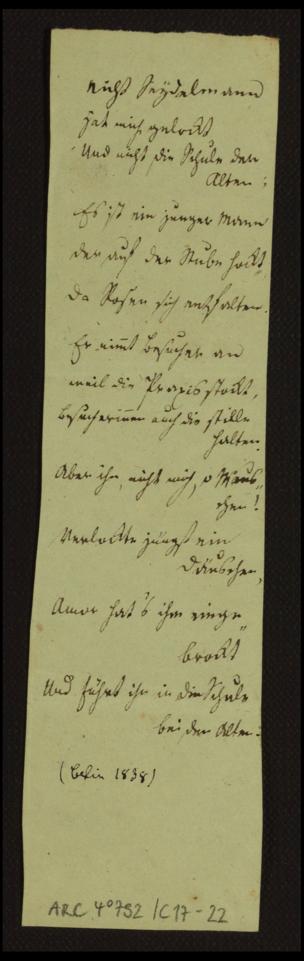 nicht Seydelmann
hat mich gelockt
Und nicht die Schule der
Alten:
Es ist ein junger Mann
der auf der Stube hockt
Da Rosen sich entfalten.
Er nimmt Besucher an
weil die Praxis stockt,
Besucherinnen auch die stille
halten.
Aber ihn, nicht mich, o Mäus-
chen!
Verlockte jüngst ein
Däuschen,
Amor hat's ihm einge-
brockt
Und führt ihn in die Schule
bei den Alten:
(Berlin 1838)
ARC 4° 792 / C17-22